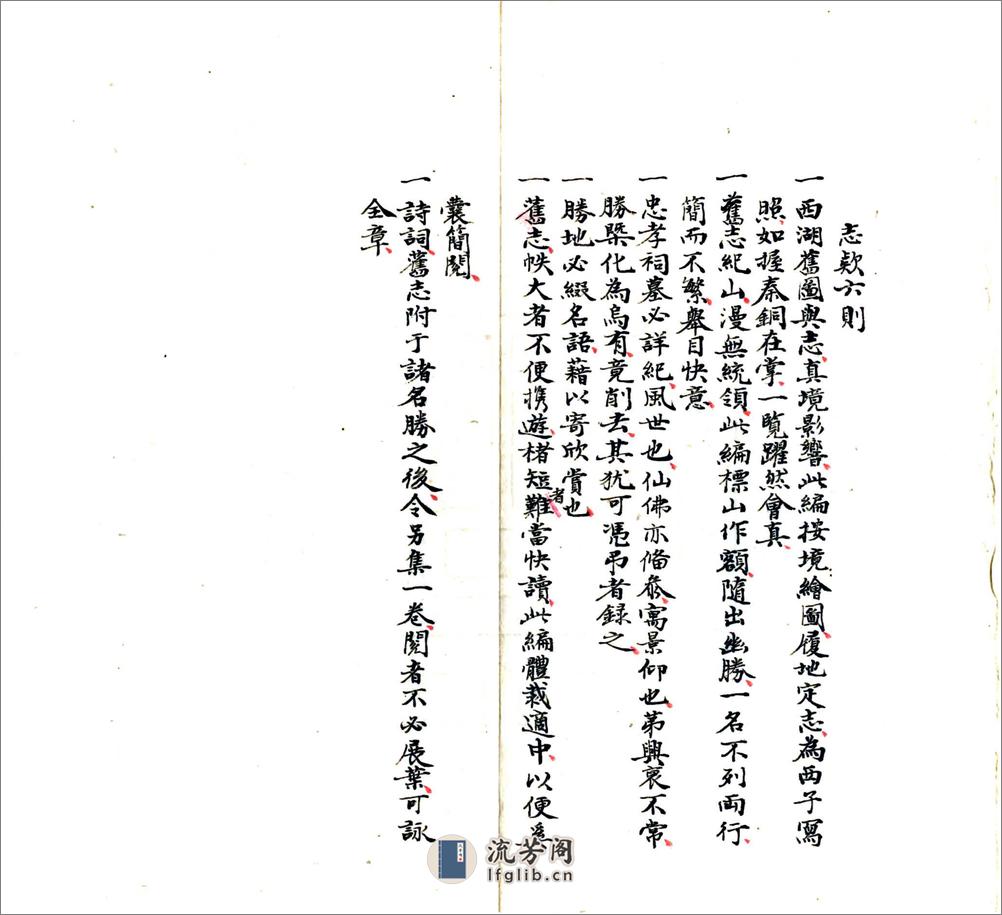 志款六則
一西湖舊圖與志真境影響此編按境繪圖履地定志為西子寫
照如握秦銅在掌一覽躍然會真
一舊志紀山漫無統領此編標山作額隨出幽勝一名不列兩行
簡而不繁舉目快意
一忠孝祠墓必詳紀風世也仙佛亦備叅寓景仰也第興衰不常
勝槩化為烏有竟削去其犹可憑弔者録之
一勝地必綴名語藉以寄欣賞也
一舊志帙大者不便携遊楮短者難當快讀此編體裁適中以便奚
囊簡閱
一詩詞舊志附于諸名勝之後令另集一卷閱者不必展葉可詠
全章
流芳阁
lfglib.cn